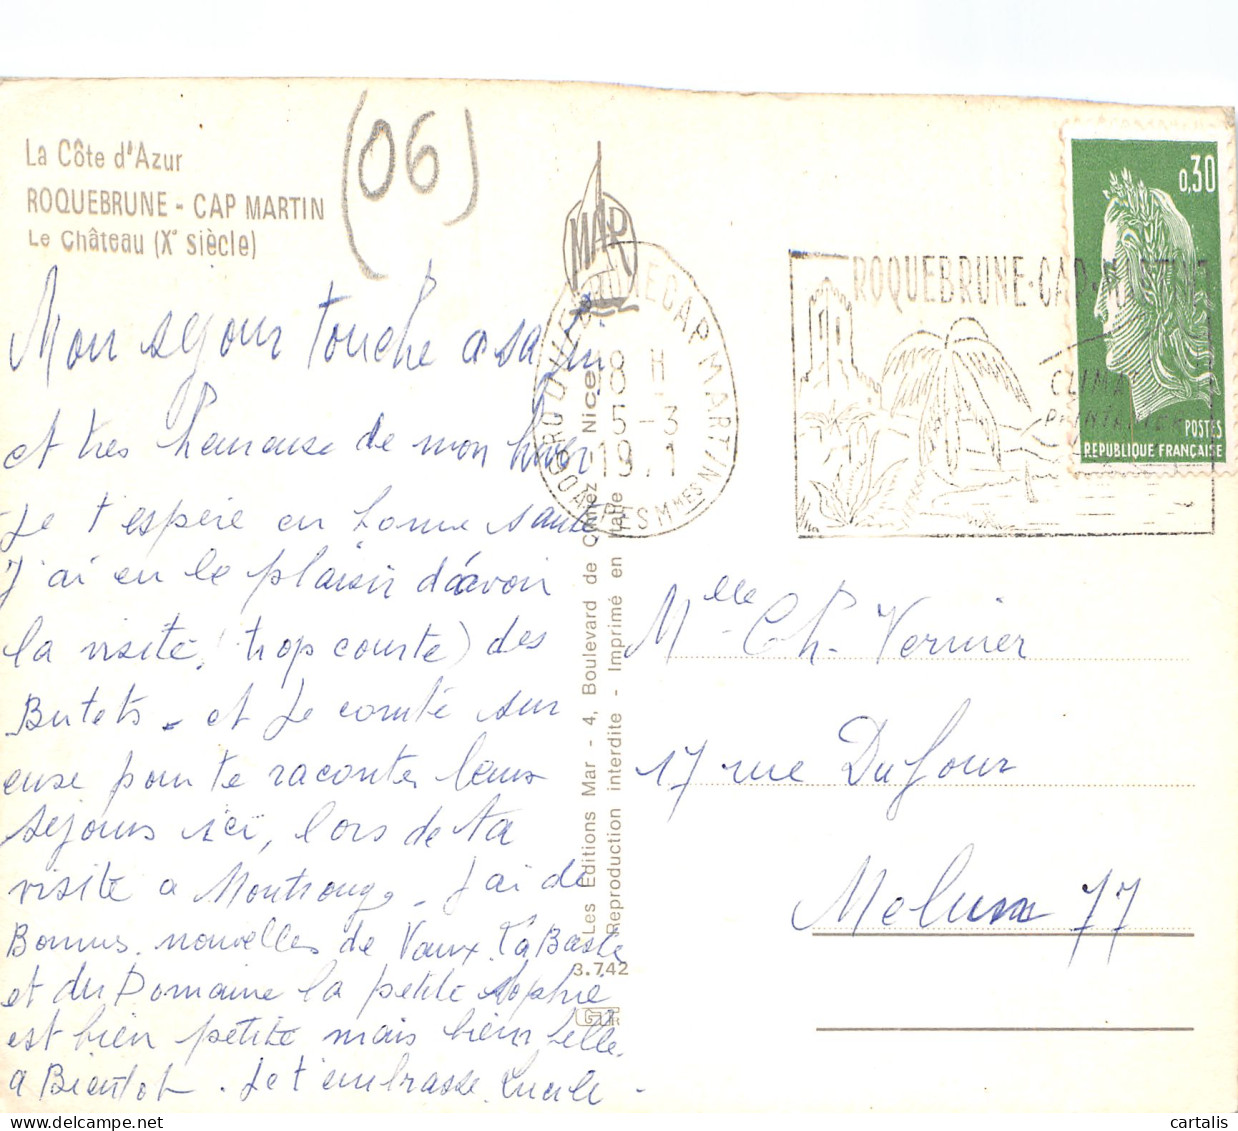 La Côte d'Azur
ROQUEBRUNE - CAP MARTIN
Le Château (X° siècle)
(06)
MAR
0,30
POSTES
REPUBLIQUE FRANÇAISE
ROQUEBRUNE-CAP-MARTIN
CLIMAT
PRINTANIER
CAP MARTIN
18 H
5-3
19.1
ALPES Mmes
Mon séjour touche a sa fin
et tres heureuse de mon hiver
Je t'espère en bonne santé
J'ai eu le plaisir d'avoir
la visite, (trop courte) des
Butets - et je compte sur
euse pour te raconter leurs
séjours ici, lors de ta
visite a Montrouge. J'ai de
Bonnes nouvelles de Vaux
et du Domaine la petite Sophie
est bien petite mais bien belle.
a Bientot. Je t'embrasse. Lucile -
Les Editions Mar - 4, Boulevard de - Nice
Reproduction interdite - Imprimé en Italie
3.742
Mlle Ch. Vernier
17 rue Dufour
Melun 77
cartalis